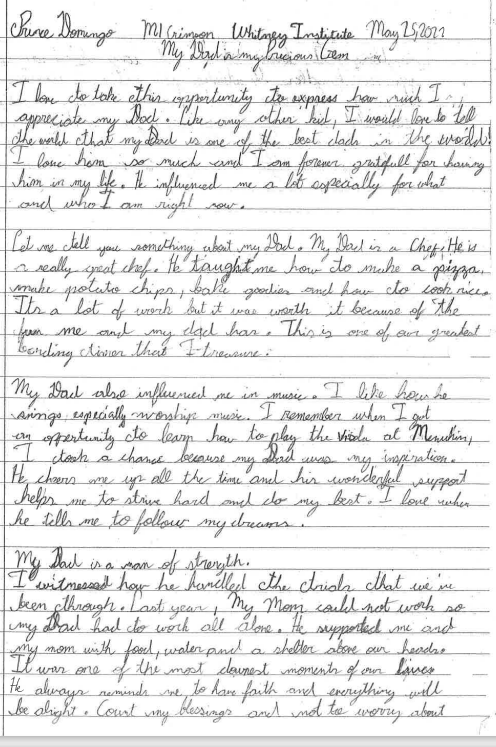 Prince Domingo M1 Crimson Whitney Institute May 25, 2022
My Dad is my Precious Gem
I love to take this opportunity to express how much I
appreciate my Dad. Like any other kid, I would love to tell
the world that my Dad is one of the best dads in the world!
I love him so much and I am forever gratefull for having
him in my life. He influenced me a lot especially for what
and who I am right now.
Let me tell you something about my Dad. My Dad is a Chef. He is
a really great chef. He taught me how to make a pizza,
make potato chips, bake goodies and how to cook rice.
Its a lot of work but it was worth it because of the
fun me and my dad has. This is one of our greatest
bonding times that I treasure.
My Dad also influenced me in music. I like how he
sings especially worship music. I remember when I got
an oppertunity to learn how to play the Viola at Menuhin,
I took a chance because my Dad was my inspiration.
He cheers me up all the time and his wonderful support
helps me to strive hard and do my best. I love when
he tells me to follow my dreams.
My Dad is a man of strength.
I witnessed how he handled the trials that we've
been through. Last year, My Mom could not work so
my Dad had to work all alone. He supported me and
my mom with food, water and a shelter above our heads.
It was one of the most downest moments of our lives
He always reminds me to have faith and everything will
be alright. Count my blessings and not to worry about